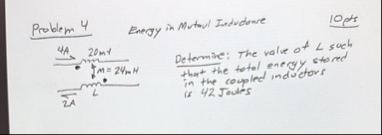 Problem 4
Energy in Mutual Inductance
10pts
4A
20mH
M = 24mH
L
2A
Determine: The value of L such
that the total energy stored
in the coupled inductors
is 42 Joules